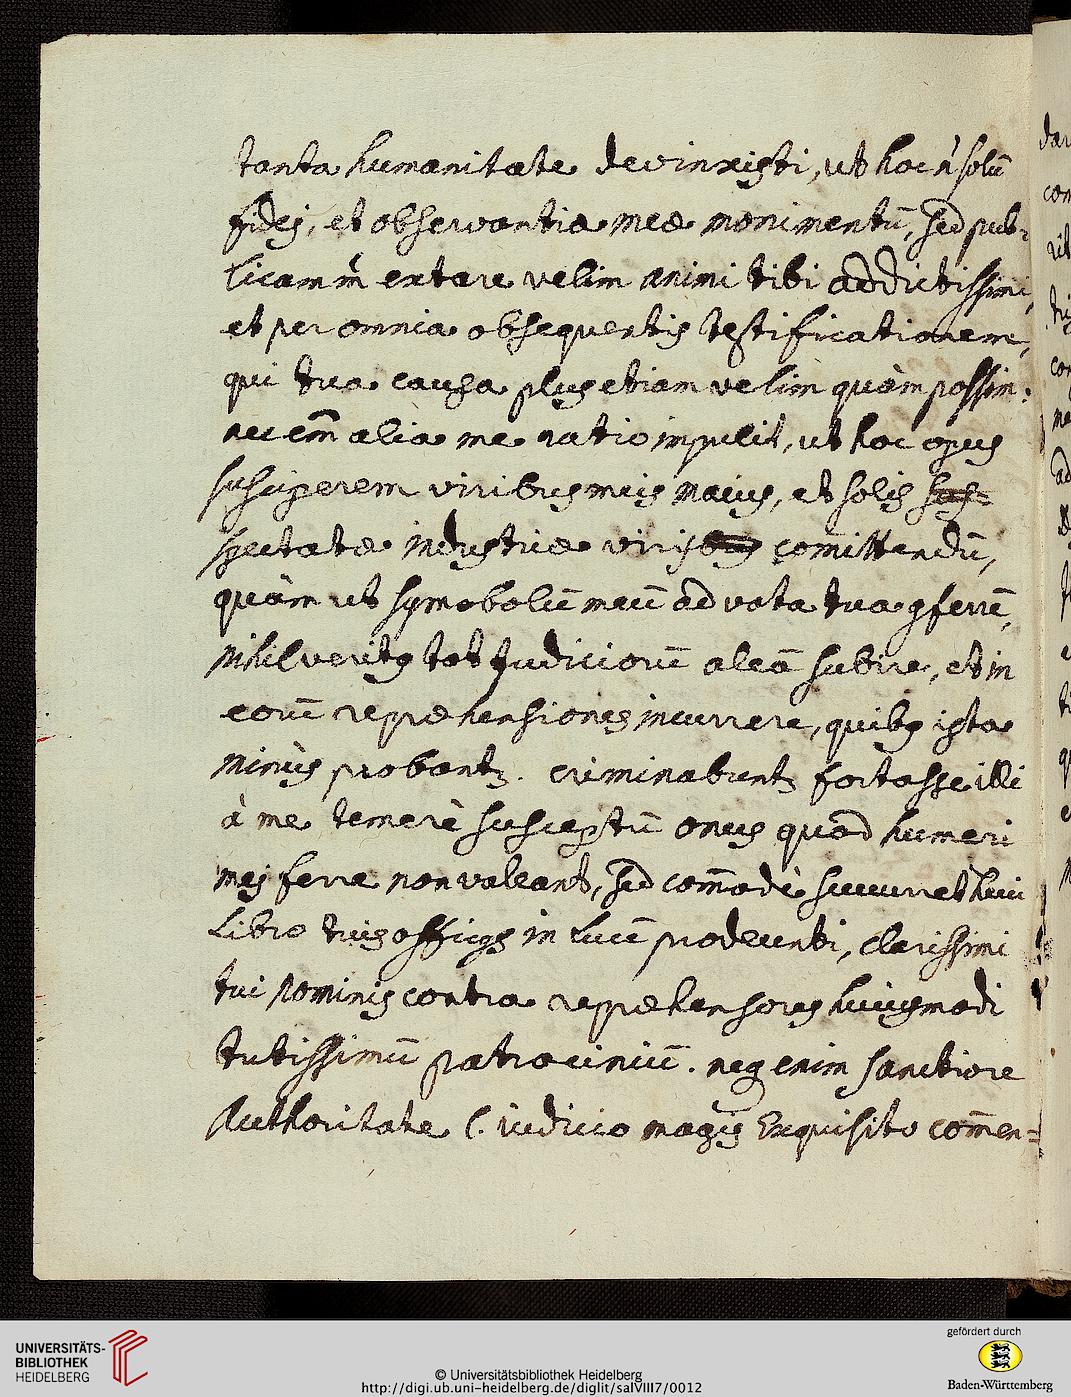 tanta humanitate devinxisti, ut hoc ñ solũ
fidej, et observantiæ meæ monimentũ, sed pub-
licam m̃ extare velim animi tibi addictissimi,
et per omnia obsequentis testificationem,
qui tua causa plus etiam velim quàm possim:
nec em̃ alia me ratio impulit, ut hoc opus
susciperem viribus meis maius, et solis sus-
spectatæ industriæ virisbus com̃ittendũ,
quàm ut symobolũ meũ ad vota tua ꝯferrẽ,
nihil veritꝯ tot judiciorũ aleã subire, et in
eorũ repræhensiones incurrere, quibꝯ ista
minùs probantꝫ. criminabuntꝫ fortasse illi
à me temerè susceptũ onus quod humeri
mej ferre non valeant, sed com̃odè succurret huic
Libro tuis officijs in lucẽ prodeunti, clarissimi
tui Nominis contra repræhensores huiusmodi
tutissimũ patrociniũ. neq enim sanctiore
Authoritate l. iudicio magis Exquisito com̃en=
UNIVERSITÄTS-
BIBLIOTHEK
HEIDELBERG
© Universitätsbibliothek Heidelberg
http://digi.ub.uni-heidelberg.de/diglit/salVIII7/0012
gefördert durch
Baden-Württemberg